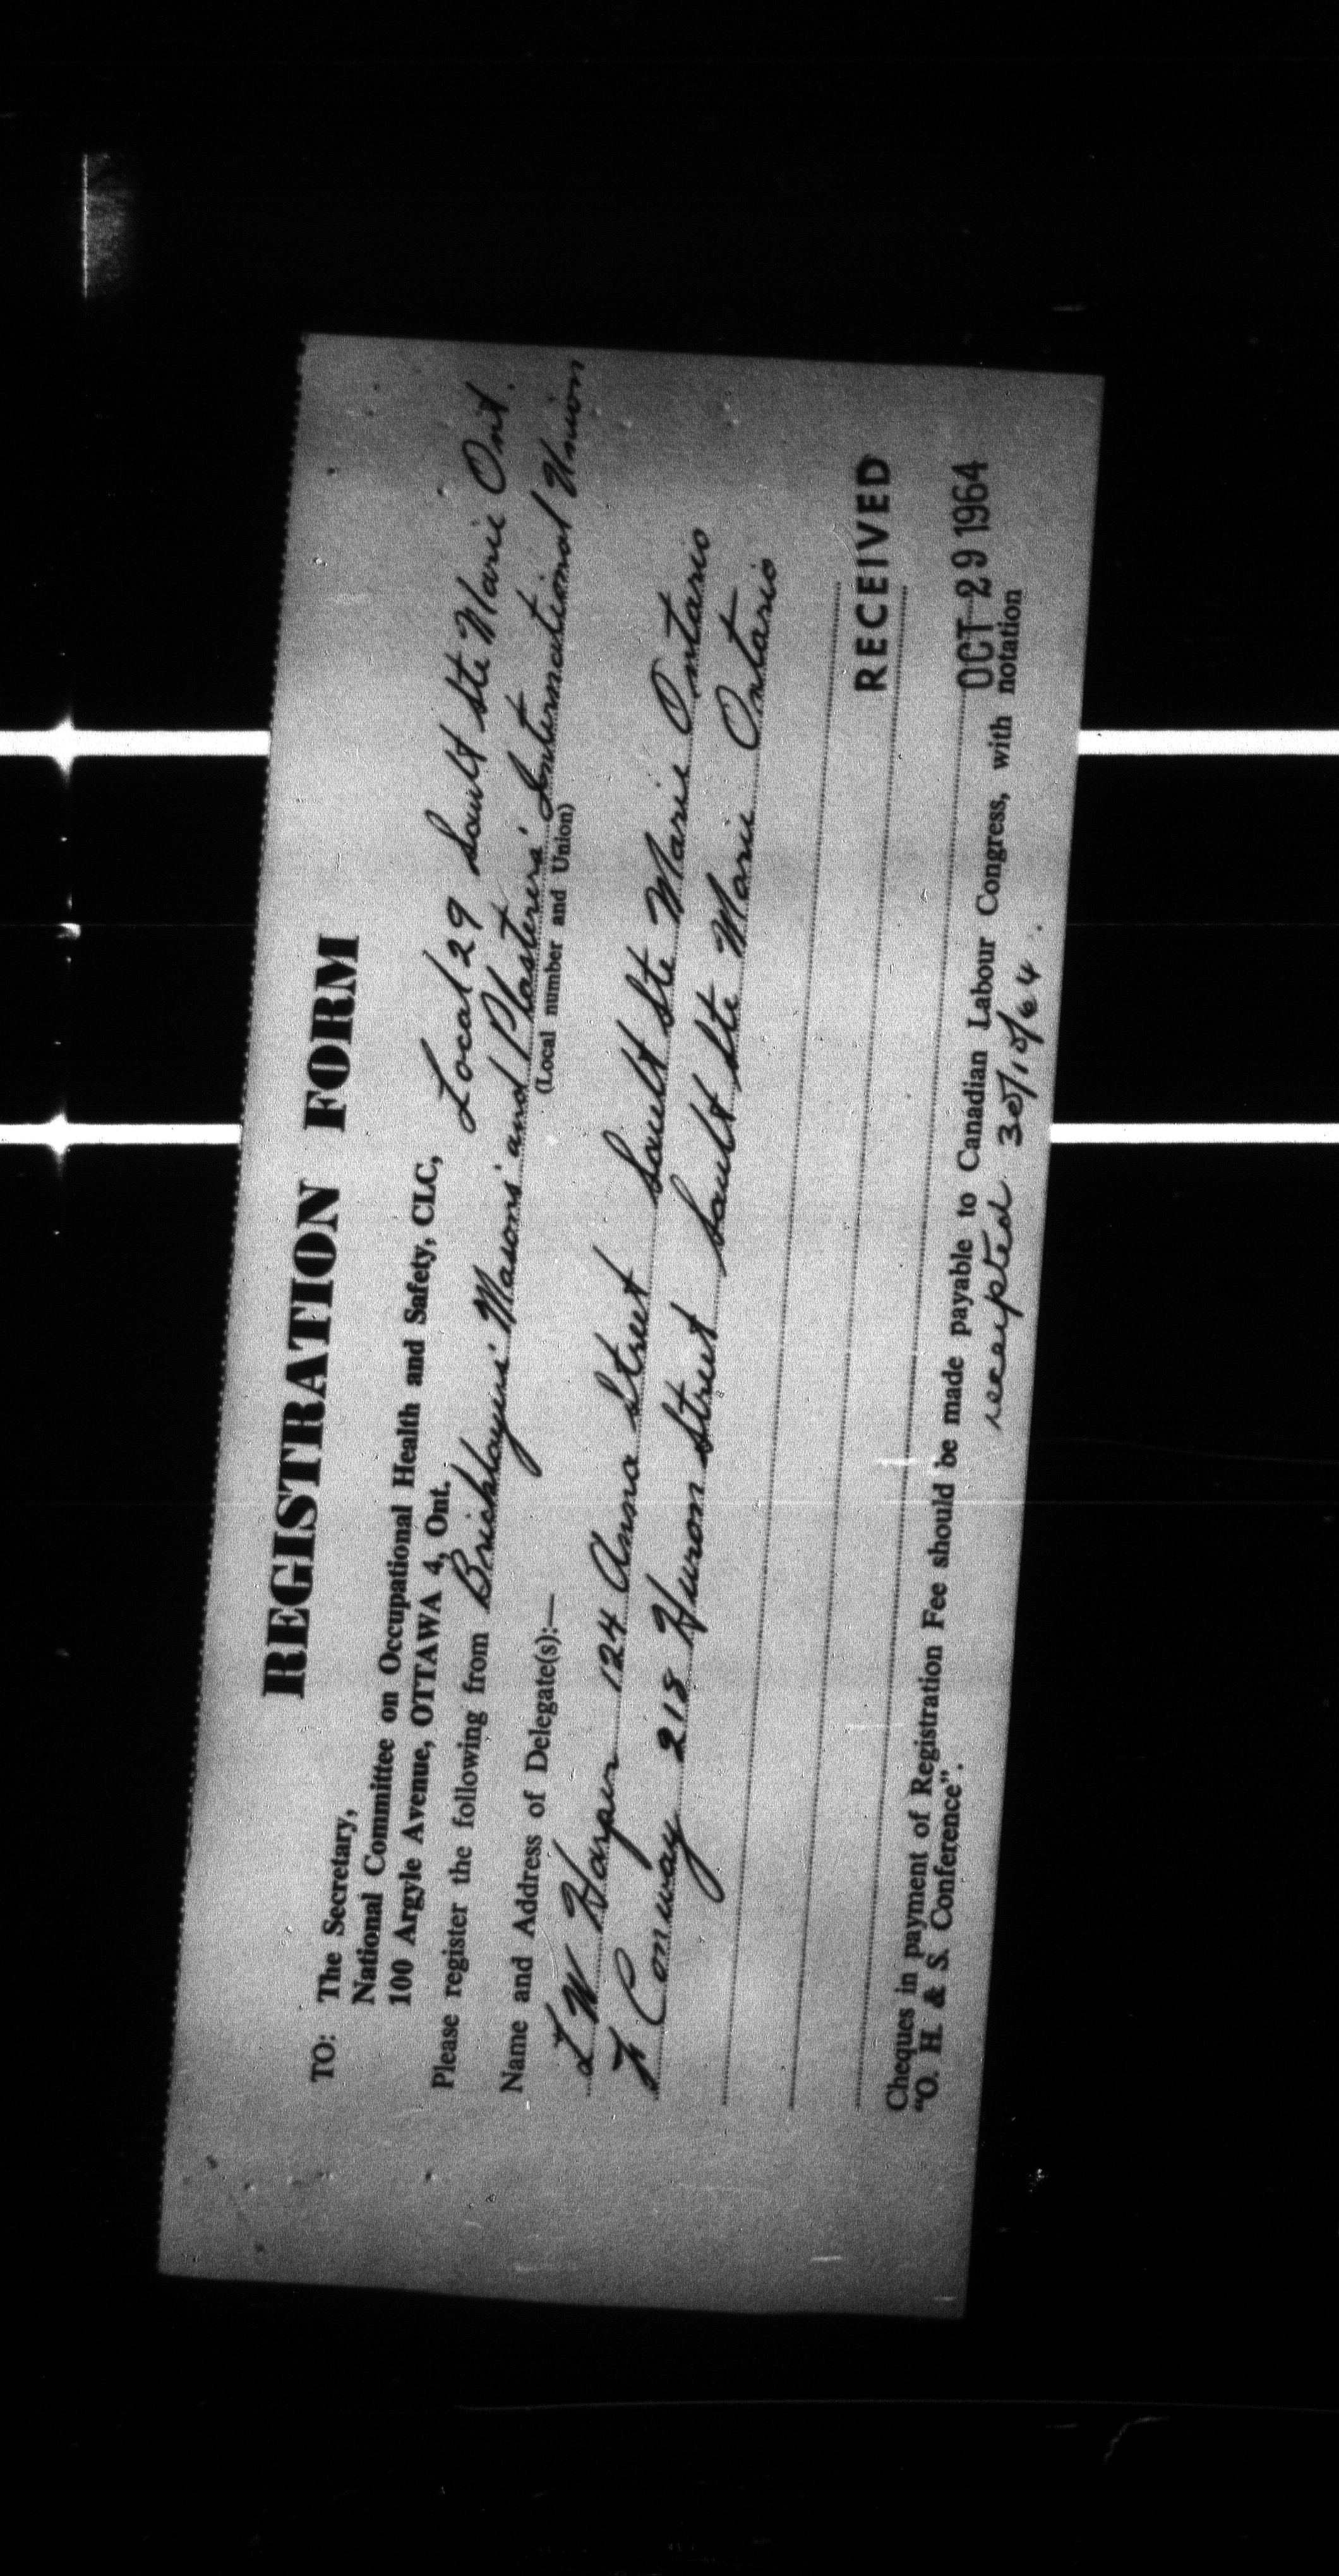 REGISTRATION FORM
TO: The Secretary,
National Committee on Occupational Health and Safety, CLC,
100 Argyle Avenue, OTTAWA 4, Ont.
Local 29 Sault Ste Marie Ont.
Please register the following from Bricklayers' Masons' and Plasterers' International Union
(Local number and Union)
Name and Address of Delegate(s):—
L W Harper 124 Anna Street Sault Ste Marie Ontario
F Conway 218 Huron Street Sault Ste Marie Ontario
RECEIVED
OCT 29 1964
Cheques in payment of Registration Fee should be made payable to Canadian Labour Congress, with notation
"O. H. & S. Conference".
receipted 30/10/64.